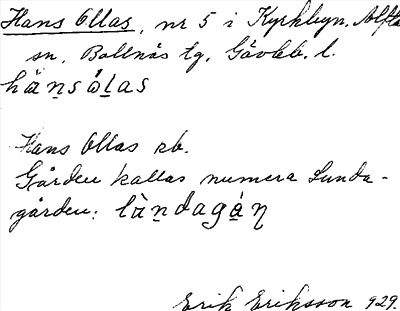 Hans Ollas, nr 5 i Kyrkbyn. Alfta
sn, Bollnäs tg, Gävleb. l.
hàṉsʹòḻas
Hans Ollas rb.
Gården kallas numera Lunda-
gården: lùṉdagạ́ṇ
Erik Eriksson 929.